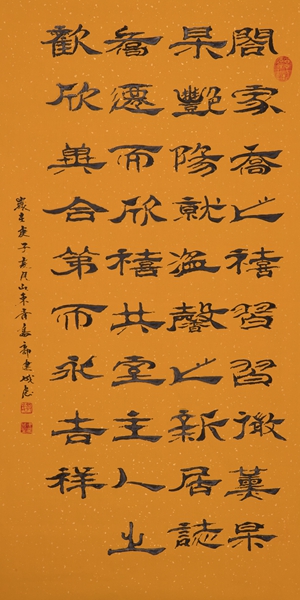 閤家喬之禧習習微薰杲
杲艷陽就溫馨之新居誌
喬遷而欣禧共堂主人之
歡欣與合第而永吉祥
歲在庚子 月山東